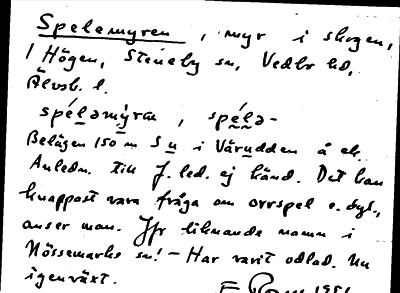 Spelemyren, myr i skogen,
1 Högen, Steneby sn, Vedbo hd,
Älvsb. l.
spé̀lǝmy̆rǝn, spé̀lǝ-
Belägen 150 m S u i Vårudden å ek.
Anledn. till f. led. ej känd. Det kan
knappast vara fråga om orrspel e. dyl.,
anser man. Jfr liknande namn i
Nössemarks sn! – Har varit odlad. Nu
igenväxt.
1951